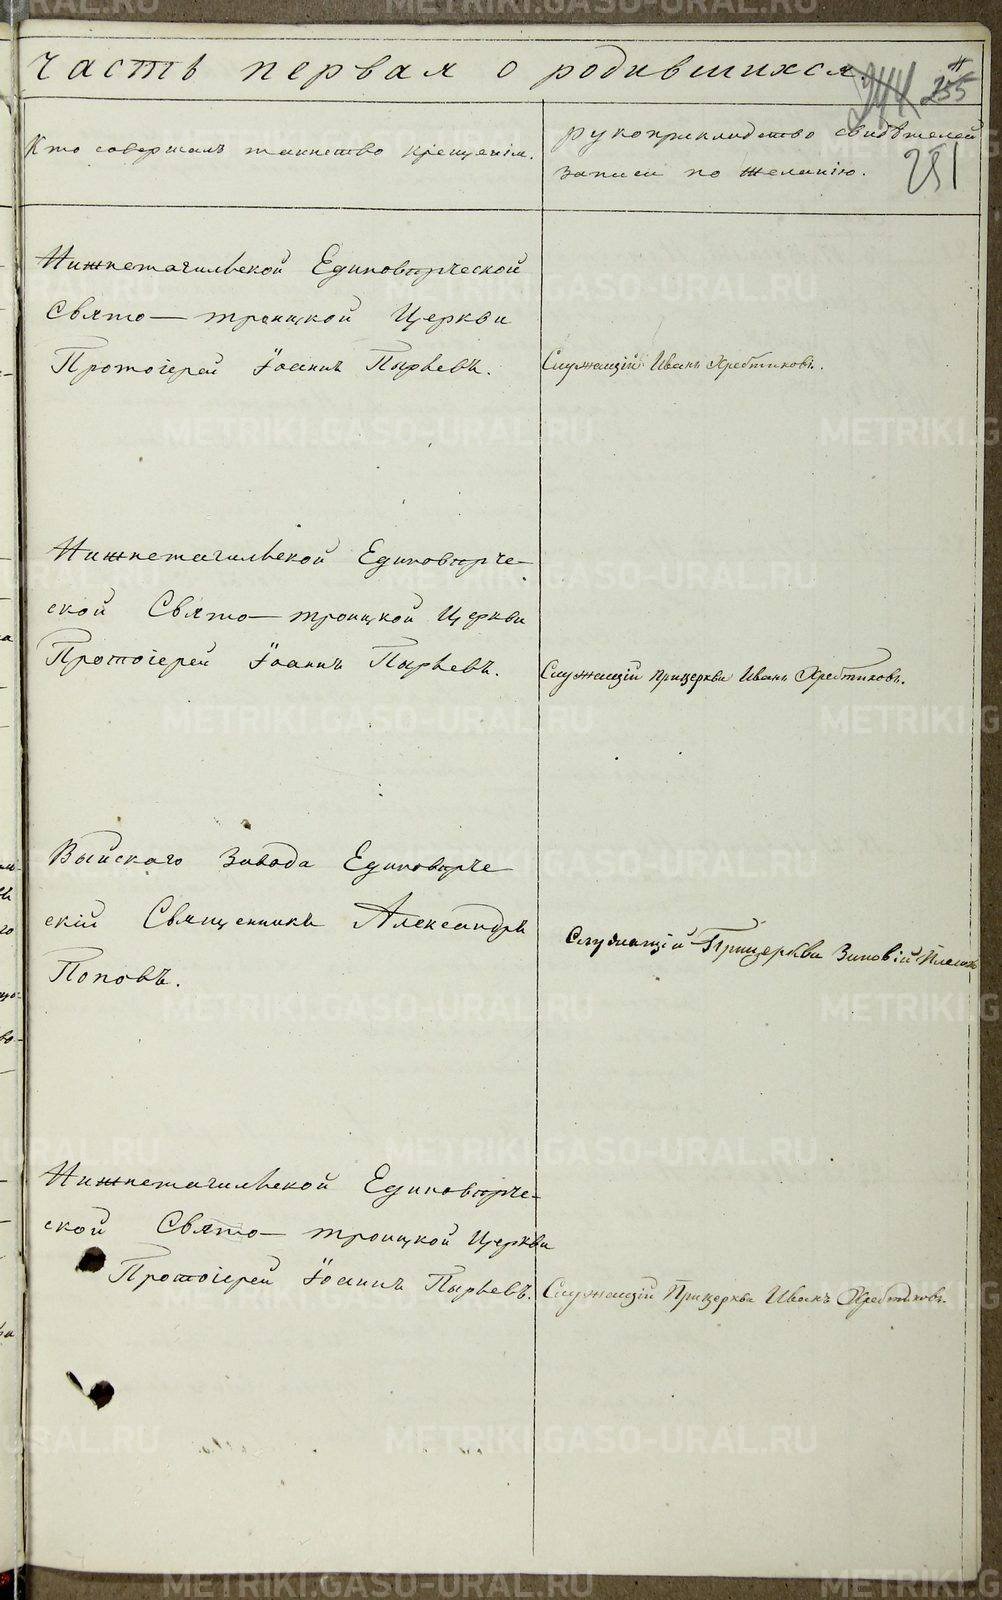 часть первая о родившихся.
244 255
251
Кто совершалъ таинство крещенія.
рукоприкладство свидѣтелей
записи по желанію.
Нижнетагильской Единовѣрческой
Свято-троицкой Церкви
Протоіерей Іоаннъ Пырьевъ.
Служащій Иванъ Хребтиковъ.
Нижнетагильской Единовѣрче-
ской Свято-троицкой Церкви
Протоіерей Іоаннъ Пырьевъ.
Служащій прицеркви Иванъ Хребтиковъ.
Выйскаго Завода Единовѣрче
скій Священникъ Александръ
Поповъ.
Служащій Прицеркви Зиновій
Нижнетагильской Единовѣрче-
ской Свято-троицкой Церкви
Протоіерей Іоаннъ Пырьевъ.
Служащій Прицеркви Иванъ Хребтиковъ.
METRIKI.GASO-URAL.RU